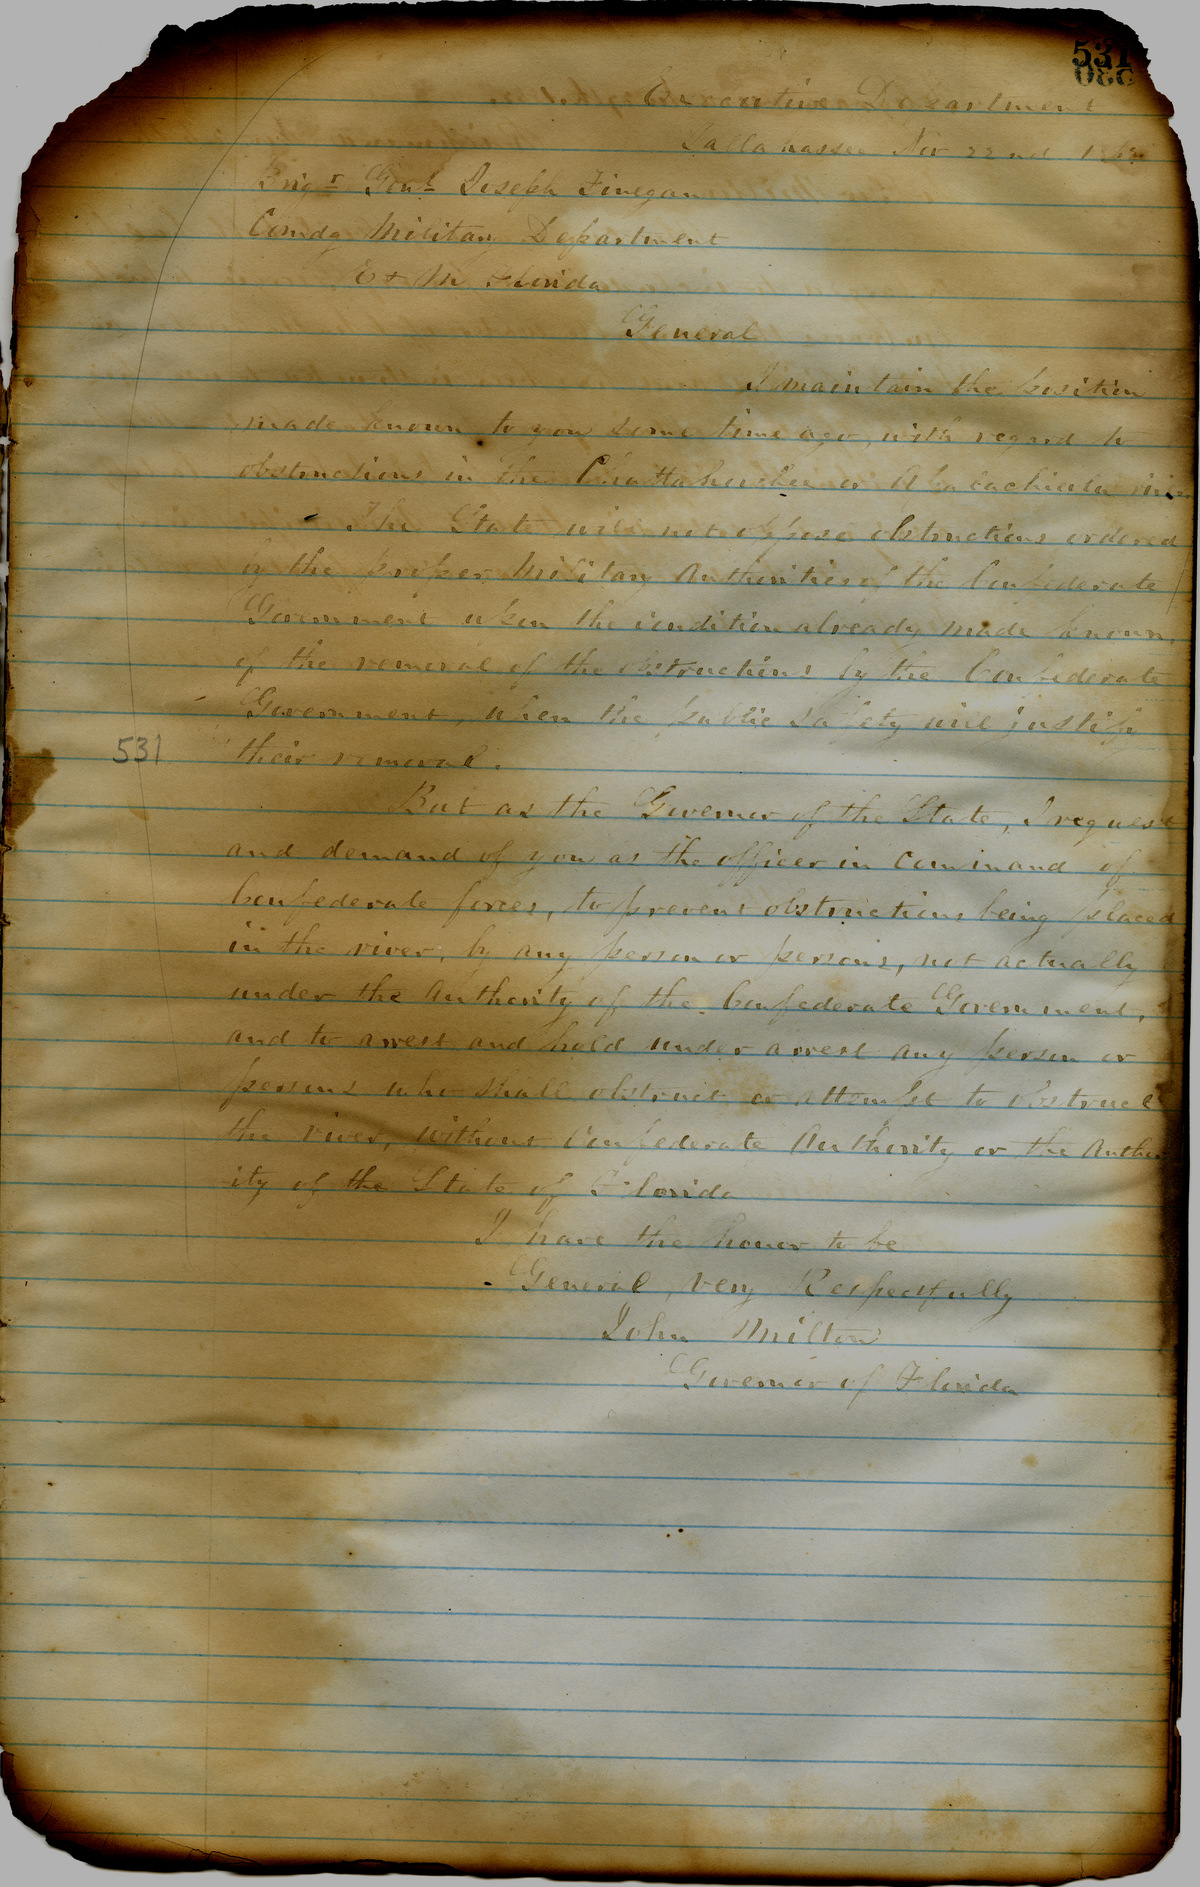 531
Executive Department
Tallahassee Nov 22nd
Brigr Genl Joseph Finegan
Comdg Military Department
E & M Florida
General
I maintain the position
made known to you some time ago, with regard to
obstructions in the Chattahoochee or Apalachicola river
The State will not oppose obstructions ordered
by the proper Military Authorities of the Confederate
Government upon the condition already made known,
of the removal of the obstructions by the Confederate
Government, when the public safety will justify
531
their removal.
But as the Governor of the State, I request
and demand of you as the officer in command of
Confederate forces, to prevent obstructions being placed
in the river, by any person or persons, not actually
under the Authority of the Confederate Government,
and to arrest and hold under arrest any person or
persons who shall obstruct or attempt to obstruct
the river, without Confederate Authority or the Author
ity of the State of Florida
I have the honor to be
General, Very Respectfully
John Milton
Governor of Florida